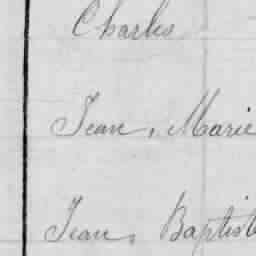 Charles
Jean, Marie
Jean, Baptist